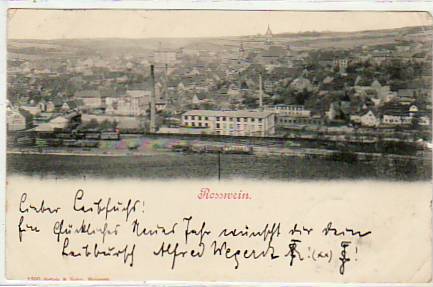 Rosswein.
Lieber Leibfuchs!
Ein Glückliches Neues Jahr wünscht dir dein
Leibbursch Alfred Wegerdt
(xx)